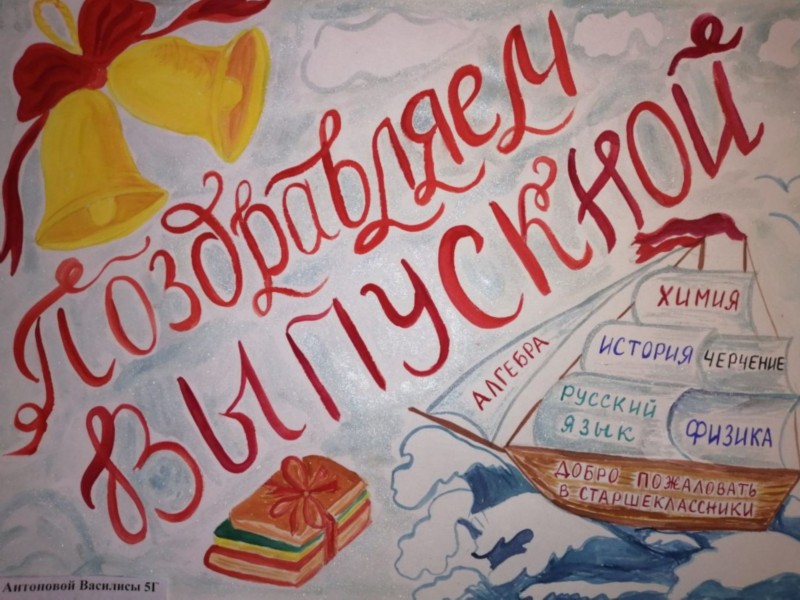 Поздравляем
ВЫПУСКНОЙ
ХИМИЯ
ИСТОРИЯ ЧЕРЧЕНИЕ
АЛГЕБРА
РУССКИЙ
ЯЗЫК
ФИЗИКА
ДОБРО ПОЖАЛОВАТЬ
В СТАРШЕКЛАССНИКИ
Антоновой Василисы 5Г